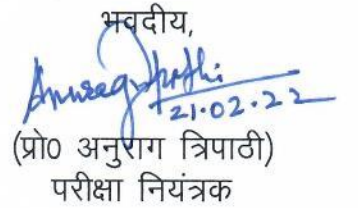 भवदीय,
Anurag Tripathi
21.02.22
(प्रो0 अनुराग त्रिपाठी)
परीक्षा नियंत्रक